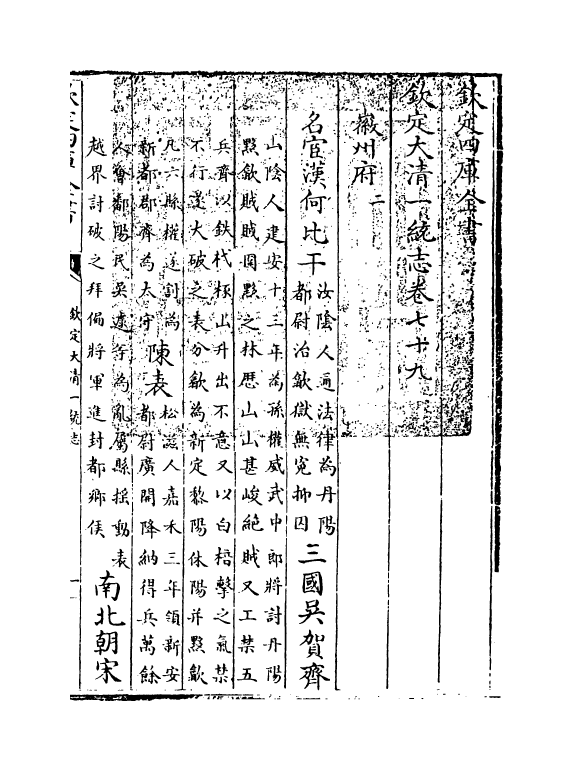 欽定四庫全書
欽定大清一統志卷七十九
徽州府二
名宦漢何比干汝陰人通法律為丹陽
都尉治歙獄無冤抑囚三國吳賀齊
山陰人建安十三年為孫權威武中郎將討丹陽
黟歙賊賊固黟之林歷山山甚峻絶賊又工禁五
兵齊以鉄杙椓山升出不意又以白棓擊之氣禁
不行遂大破之表分歙為新定黎陽休陽并黟歙
凡六縣權遂割為
新都郡齊為太守陳表松滋人嘉禾三年領新安
都尉廣開降納得兵萬餘
人會鄱陽民吳遽等為亂屬縣揺動表
越界討破之拜偏將軍進封都鄉侯南北朝宋
欽定四庫全書
欽定大清一統志
一